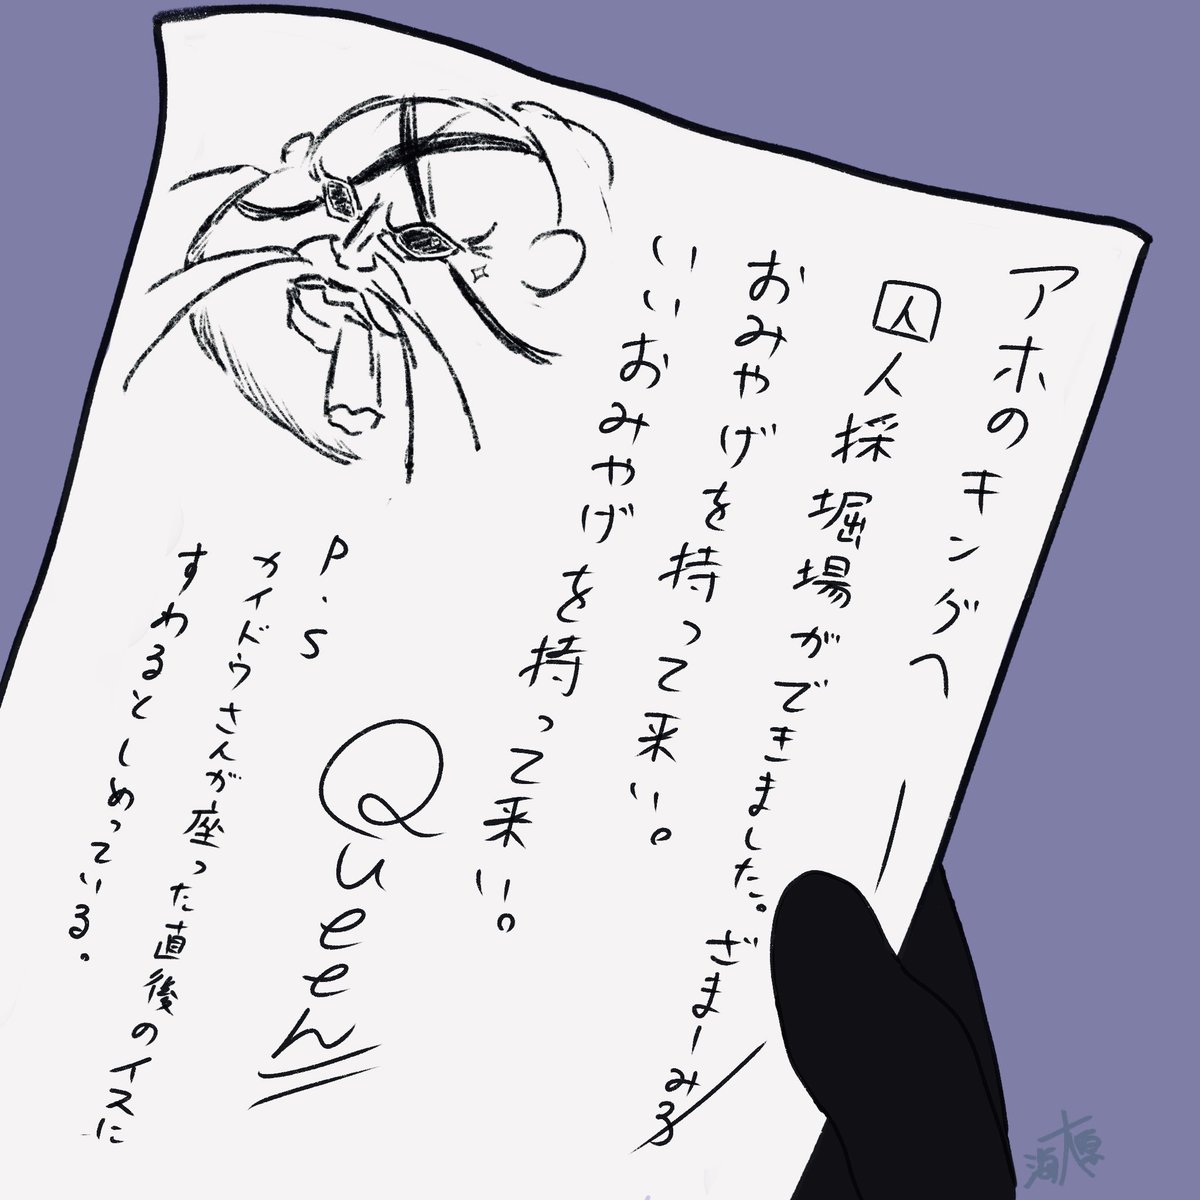 アホのキングへ
囚人採堀場ができました。ざまーみろ
おみやげを持って来い。
いいおみやげを持って来い。
Queen
P.S
カイドウさんが座った直後のイスに
すわるとしめっている。